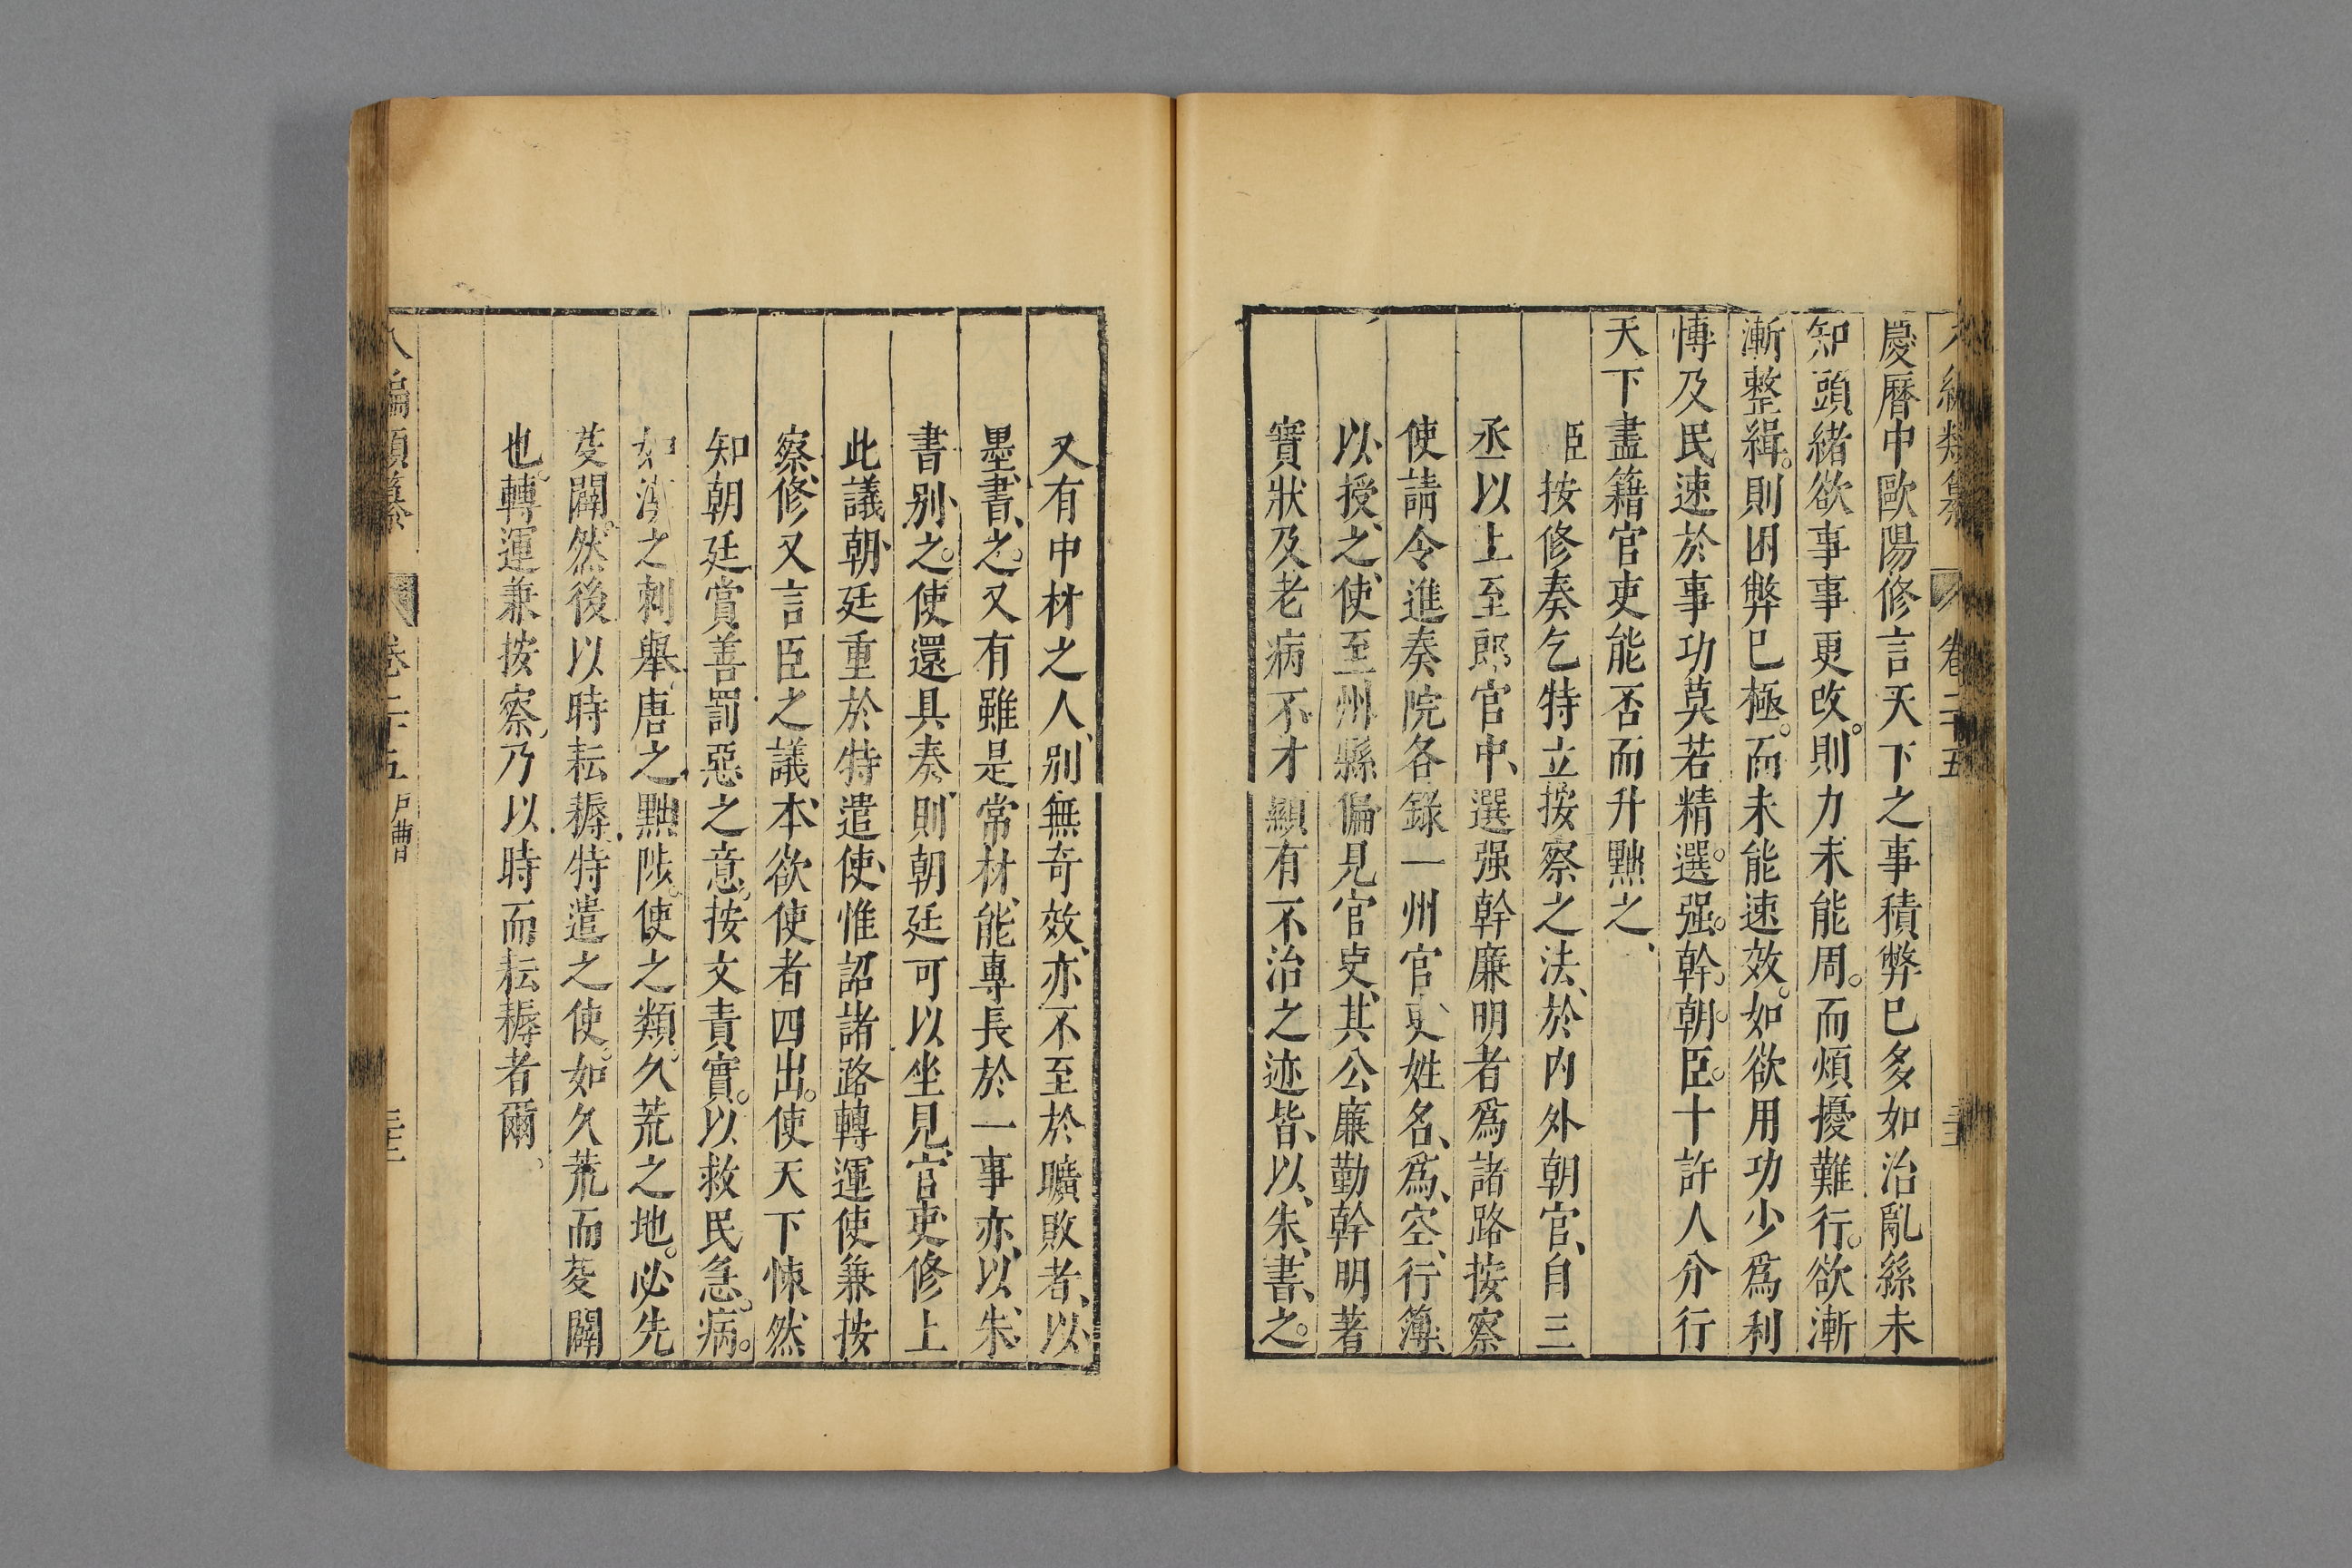 八編類纂 卷二十五
慶曆中歐陽修言天下之事積弊已多如治亂絲未
知頭緒欲事事更改則力未能周而煩擾難行欲漸
漸整緝則困弊已極而未能速效如欲用功少爲利
博及民速於事功莫若精選强幹朝臣十許人分行
天下盡籍官吏能否而升黜之
臣按修奏乞特立按察之法於內外朝官自三
丞以上至郎官中選强幹廉明者爲諸路按察
使請令進奏院各錄一州官吏姓名爲空行簿
以授之使至州縣徧見官吏其公廉勤幹明著
實狀及老病不才顯有不治之迹皆以朱書之
又有中材之人别無奇效亦不至於曠敗者以
墨書之又有雖是常材能專長於一事亦以朱
書别之使還具奏則朝廷可以坐見官吏修上
此議朝廷重於特遣使惟詔諸路轉運使兼按
察修又言臣之議本欲使者四出使天下悚然
知朝廷賞善罰惡之意按文責實以救民急病
如漢之刺舉唐之黜陟使之類久荒之地必先
芟闢然後以時耘耨特遣之使如久荒而芟闢
也轉運兼按察乃以時而耘耨者爾
八編類纂 卷二十五 戶曹